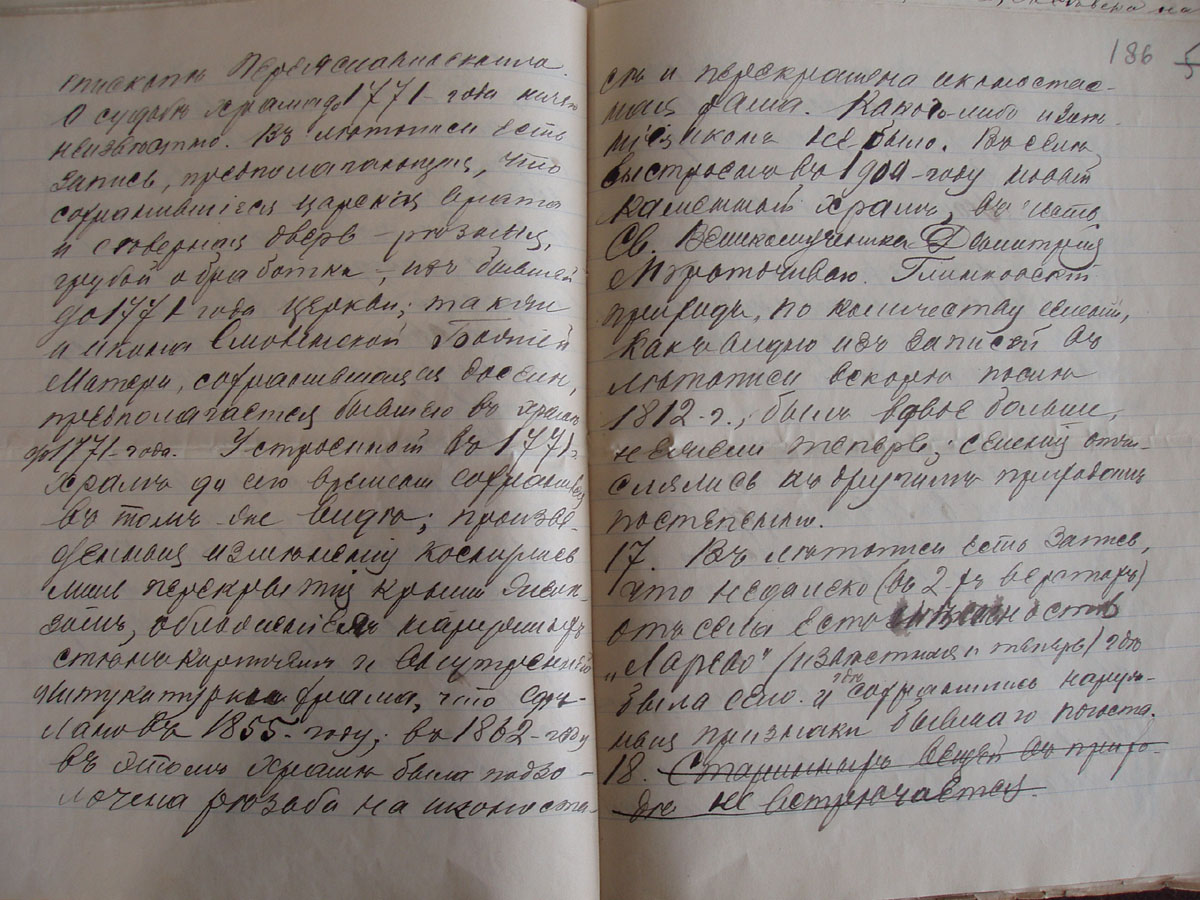 епископъ Переяславльскiй.
О судьбѣ храма до 1771-года ничего
неизвѣстно. Въ лѣтописи есть
запись, предполагающая, что
сохранившiеся царскiя врата
и сѣверная дверь – рѣзныя,
грубой обработки, – изъ бывшей
до 1771 года церкви; также
и икона Смоленской Божiей
Матери, сохранившаяся доселѣ,
предполагается бывшею въ храмѣ
до 1771-года. Устроенный въ 1771 г.
храмъ до сего времени сохранился
въ томъ же видѣ; произве-
денныя измѣненiя коснулись
лишь перекрытiя крыши желѣ-
зомъ, обложенiемъ наружныхъ
стѣнъ кирпичемъ и внутренней
штукатурки храма, что сдѣ-
лано въ 1855-году; въ 1862-году
въ этомъ храмѣ была позо-
лочена рѣзьба на иконоста-
186
сѣ и перекрашена иконостас-
ная рама. Какого-либо
иконъ не было. Въ селѣ
выстроенъ въ 1904-году новый
каменный храмъ, въ честь
Св. Великомученика Димитрiя
Мѵроточиваго. Глинковскiй
приходъ, по количеству селенiй,
какъ видно изъ записей въ
лѣтописи вскорѣ послѣ
1812-г., былъ вдвое больше,
нежели теперь; селенiя отчи-
слялись къ другимъ приходамъ
постепенно.
17. Въ лѣтописи есть запись,
что недалеко (въ 2-хъ верстахъ)
отъ села есть мѣстность
„Ларево" (извѣстная и теперь) где
была село. и где сохранились наруж-
ныя признаки бывшаго погоста.
18. Старинныхъ вещей въ прихо-
дѣ не встрѣчается.